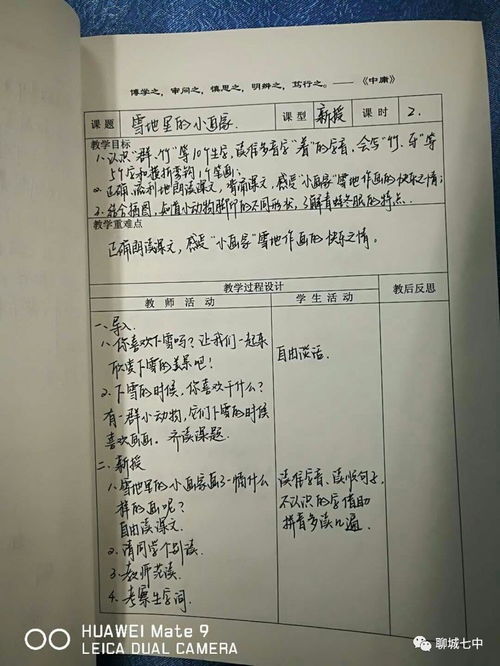 博学之，审问之，慎思之，明辨之，笃行之。——《中庸》
课题 雪地里的小画家 课型 新授 课时 2.
教学目标
1、认识“群、竹”等10个生字，读准多音字“着”的字音，会写“竹、牙”等
5个字和横折弯钩1个笔画。
2、正确、流利地朗读课文，背诵课文，感受“小画家”雪地作画的快乐之情；
3、结合插图，知道小动物脚印的不同形状，了解青蛙冬眠的特点.
教学重难点
正确朗读课文，感受“小画家”雪地作画的快乐之情。
教学过程设计
教师活动 学生活动 教后反思
一、导入.
1、你喜欢下雪吗？让我们一起来
欣赏下雪的美景吧！
自由谈话.
2、下雪的时候，你喜欢干什么？
有一群小动物，它们下雪的时候
喜欢画画。齐读课题.
二、新授
1、雪地里的小画家画了一幅什么
样的画呢？
自由读课文.
读准字音、读顺句子，
不认识的字借助
拼音多读几遍.
2、请同学个别读.
3、教师范读.
4、考察生字词.
HUAWEI Mate 9
LEICA DUAL CAMERA
聊城七中